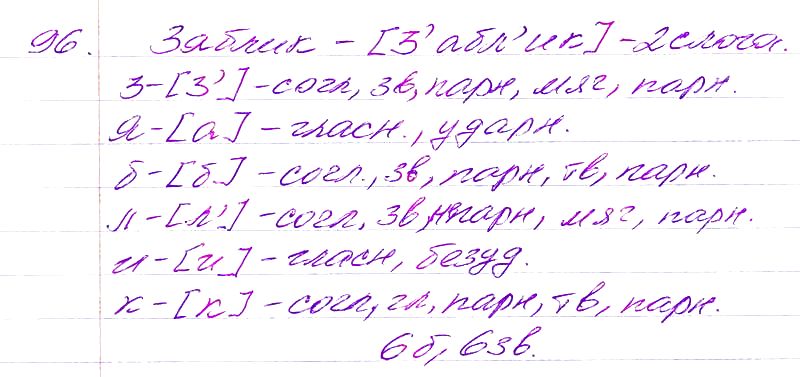 96. Зяблик - [З'абл'ик] - 2 слога.
з - [З'] - согл, зв, парн, мяг, парн.
Я - [а] - гласн., ударн.
б - [б] - согл., зв, парн, тв, парн.
л - [л'] - согл, зв, непарн, мяг, парн.
и - [и] - гласн, безуд.
к - [к] - согл, гл, парн, тв, парн.
6 б, 6 зв.